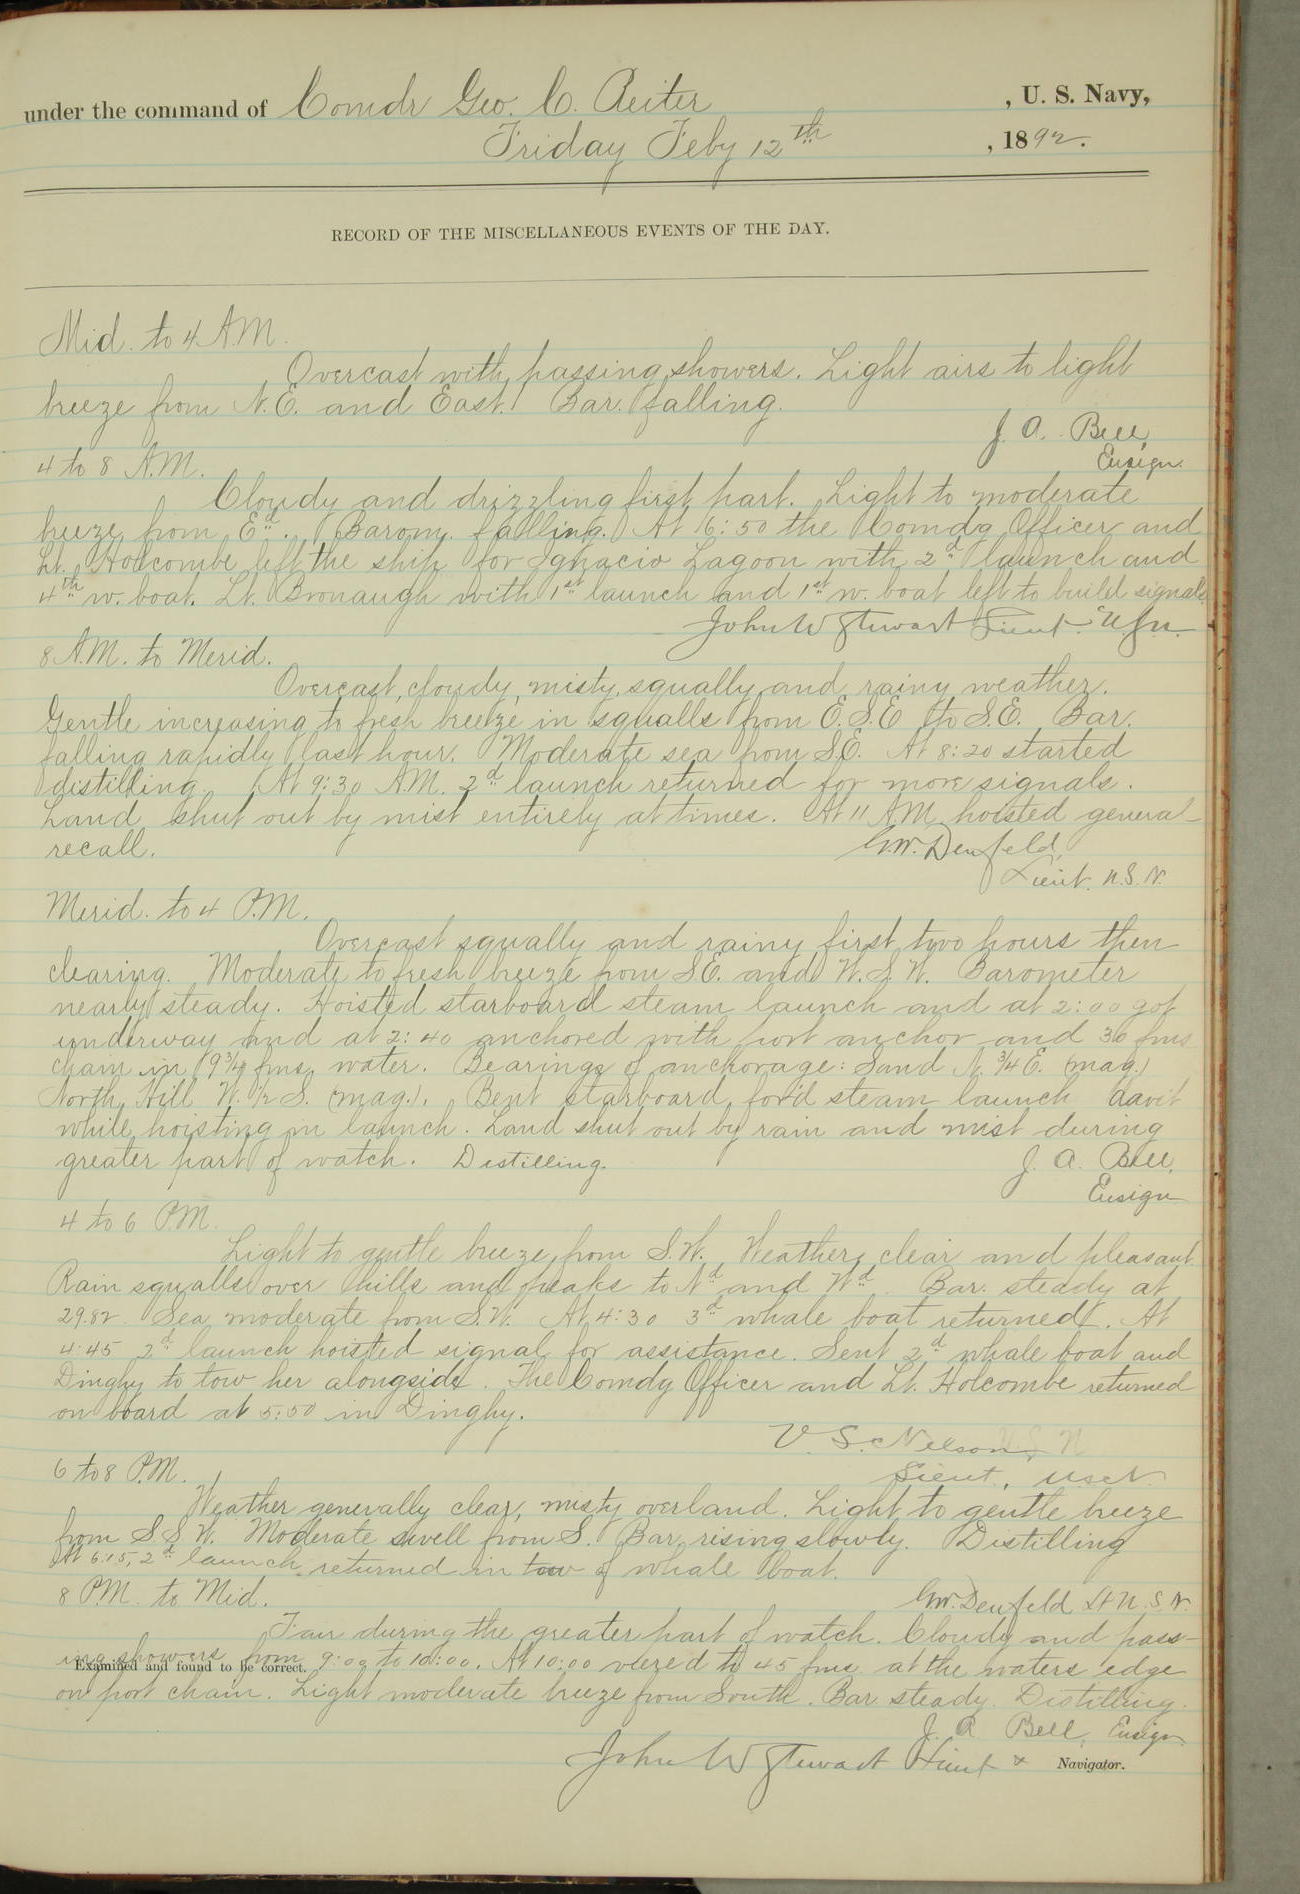 under the command of Comdr Geo. C. Reiter , U. S. Navy,
Friday Feby 12th , 1892.
RECORD OF THE MISCELLANEOUS EVENTS OF THE DAY.
Mid. to 4 A.M.
Overcast with passing showers. Light airs to light
breeze from N.E. and East. Bar. falling.
J. A. Bell,
Ensign.
4 to 8 A.M.
Cloudy and drizzling first part. Light to moderate
breeze from Ed. Barom. falling. At 6:50 the Comdg Officer and
Lt. Holcombe left the ship for Ignacio Lagoon with 2d launch and
4th w. boat. Lt. Bronaugh with 1st launch and 1st w. boat left to build signals.
John W Stewart Lieut. U.S.N.
8 A.M. to Merid.
Overcast, cloudy, misty, squally and rainy weather.
Gentle increasing to fresh breeze in squalls from E.S.E to S.E. Bar.
falling rapidly last hour. Moderate sea from S.E. At 8:20 started
distilling. At 9:30 A.M. 2d launch returned for more signals.
Land shut out by mist entirely at times. At 11 A.M. hoisted general
recall.
G.W. Denfeld,
Lieut. U.S.N.
Merid. to 4 P.M.
Overcast squally and rainy first two hours then
clearing. Moderate to fresh breeze from S.E. and W.S.W. Barometer
nearly steady. Hoisted starboard steam launch and at 2:00 got
underway and at 2:40 anchored with port anchor and 30 fms
chain in 9 3/4 fms. water. Bearings of anchorage: Sand N. 3/4 E. (mag.)
North Hill W. 1/2 S. (mag.). Bent starboard for'd steam launch davit
while hoisting in launch. Land shut out by rain and mist during
greater part of watch. Distilling.
J. A. Bell,
Ensign
4 to 6 P.M.
Light to gentle breeze from S.W. Weather clear and pleasant
Rain squalls over hills and peaks to Nd and Wd. Bar. steady at
29.82. Sea moderate from S.W. At 4:30 3d whale boat returned. At
4:45 2d launch hoisted signal for assistance. Sent 2d whale boat and
Dinghy to tow her alongside. The Comdg Officer and Lt. Holcombe returned
on board at 5:50 in Dinghy.
V. S. Nelson,
Lieut., USN
6 to 8 P.M.
Weather generally clear, misty overland. Light to gentle breeze
from S.S.W. Moderate swell from S. Bar. rising slowly. Distilling
At 6.15, 2d launch returned in tow of whale boat.
G.W. Denfeld Lt U.S.N.
8 P.M. to Mid.
Fair during the greater part of watch. Cloudy and pass-
ing showers from 9:00 to 10:00. At 10:00 veered to 45 fms at the waters edge
on port chain. Light moderate breeze from South. Bar steady. Distilling.
J. A Bell, Ensign
Examined and found to be correct.
John W Stewart Lieut & Navigator.